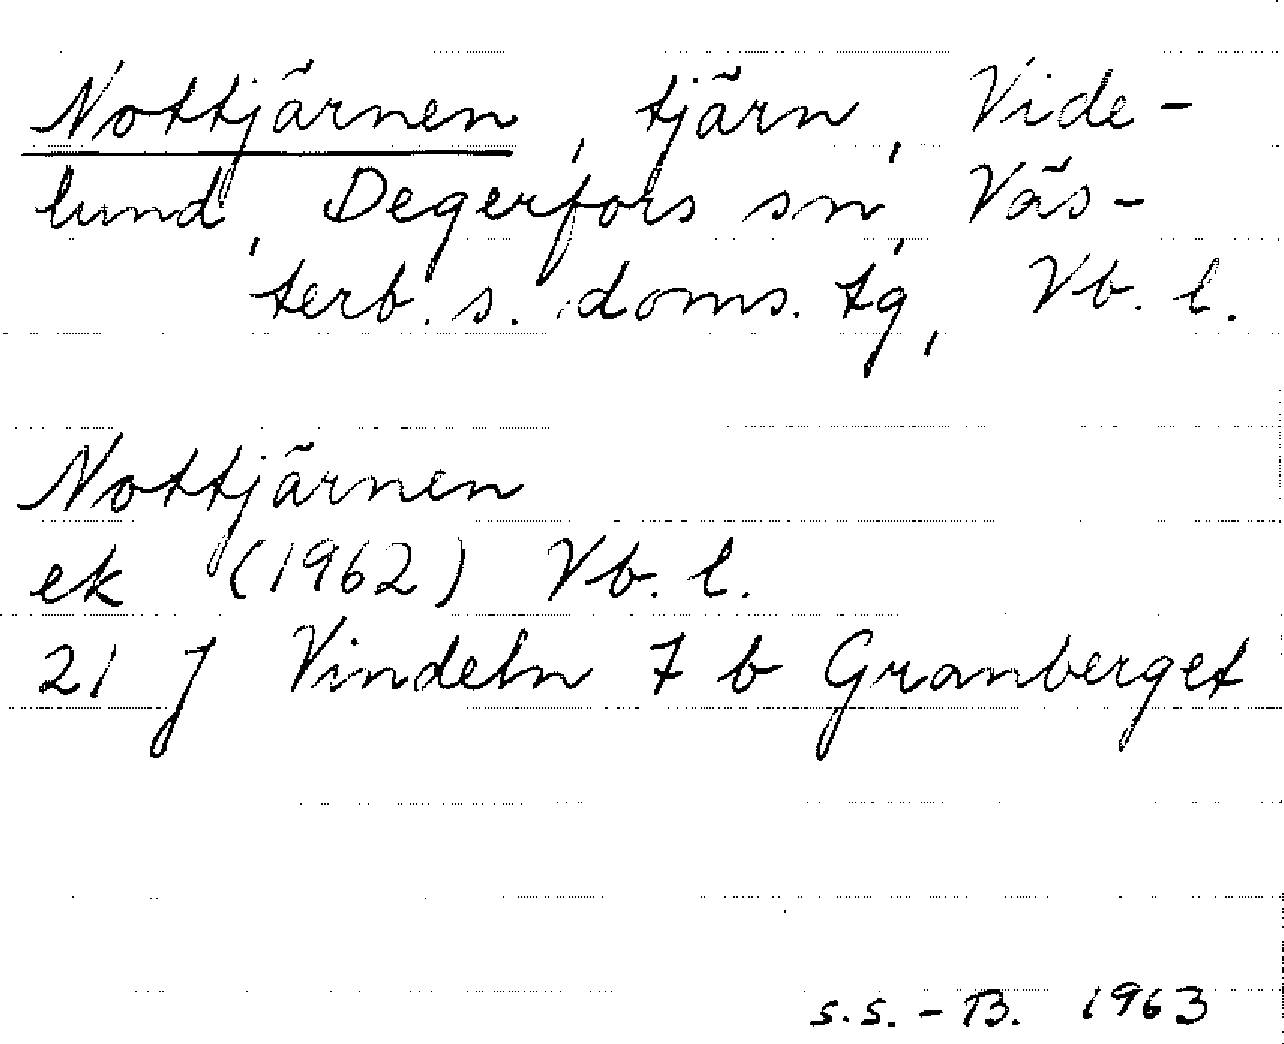 Nottjärnen, tjärn, Vide-
lund, Degerfors sn, Väs-
terb. s. doms. tg, Vb. l.
Nottjärnen
ek (1962) Vb. l.
21 J Vindeln 7 b Granberget
s.s.-B. 1963